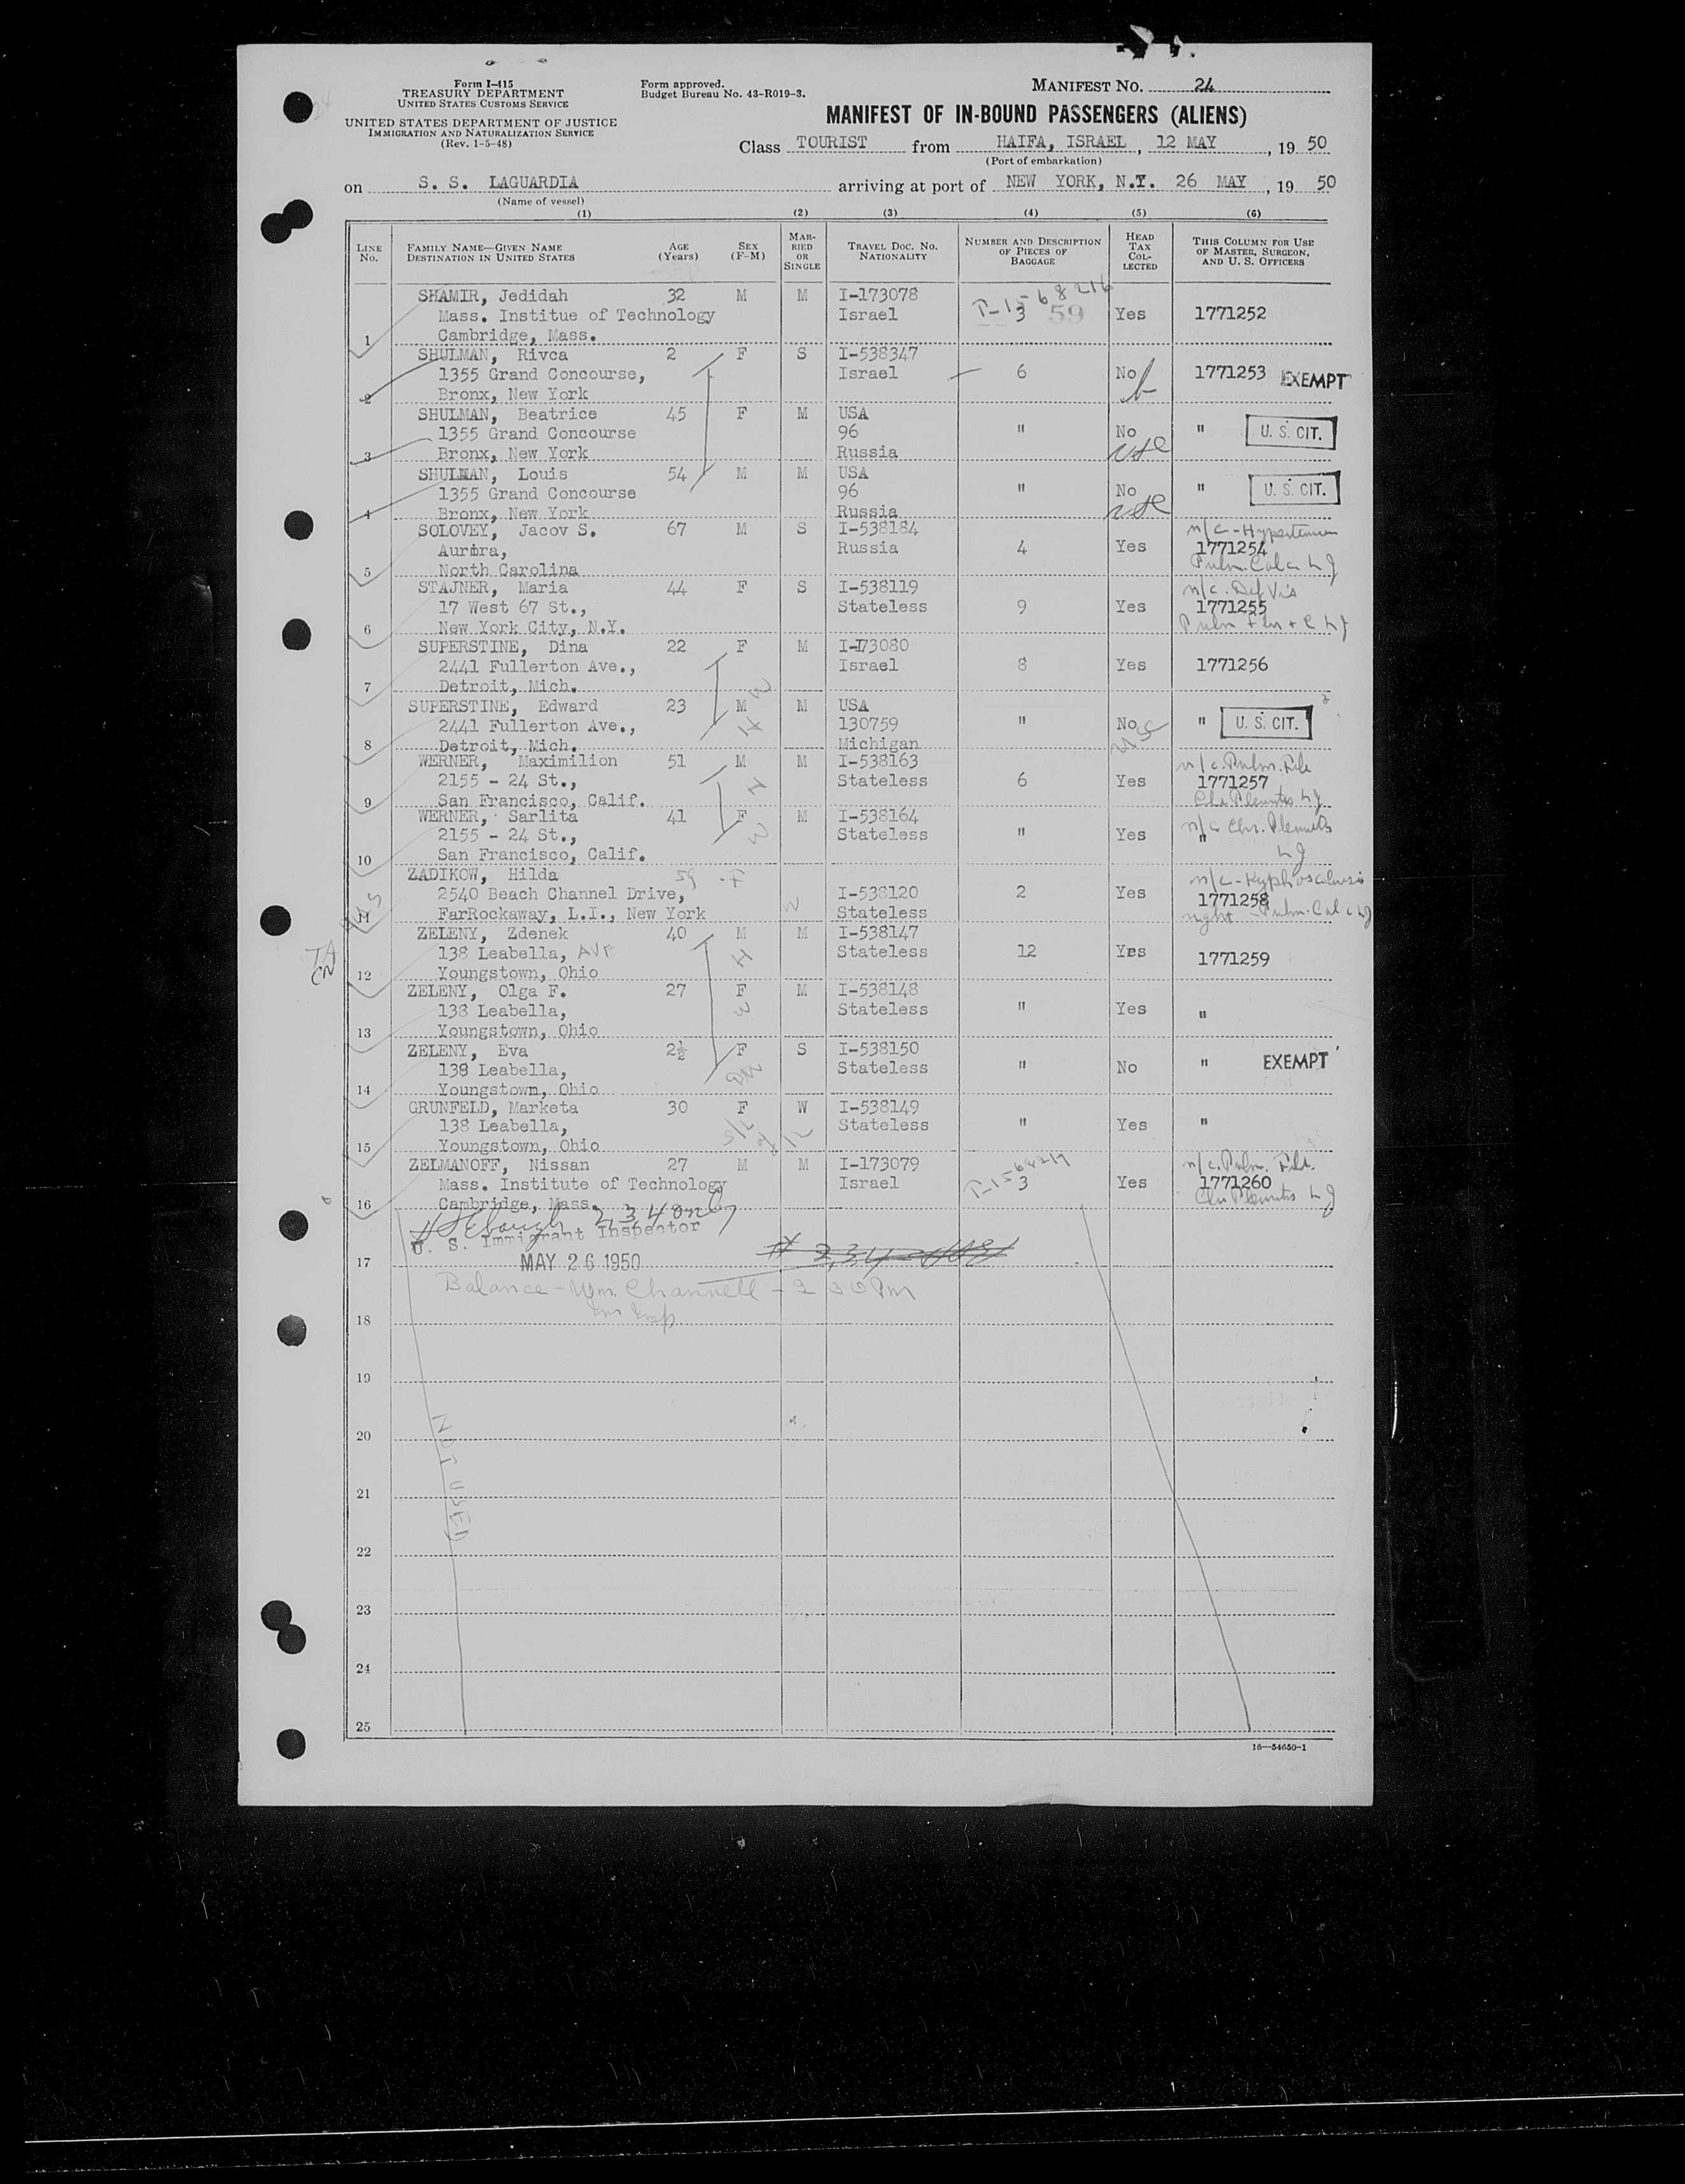 Form I-415
TREASURY DEPARTMENT
UNITED STATES CUSTOMS SERVICE
UNITED STATES DEPARTMENT OF JUSTICE
IMMIGRATION AND NATURALIZATION SERVICE
(Rev. 1-5-48)
Form approved.
Budget Bureau No. 43-R019-3.
MANIFEST NO. 24
MANIFEST OF IN-BOUND PASSENGERS (ALIENS)
Class TOURIST from HAIFA, ISRAEL, 12 MAY, 19 50
(Port of embarkation)
on S. S. LAGUARDIA arriving at port of NEW YORK, N.Y. 26 MAY, 19 50
(Name of vessel)
(1) (2) (3) (4) (5) (6)
LINE NO. FAMILY NAME—GIVEN NAME DESTINATION IN UNITED STATES AGE (Years) SEX (F-M) MARRIED OR SINGLE TRAVEL DOC. NO. NATIONALITY NUMBER AND DESCRIPTION OF PIECES OF BAGGAGE HEAD TAX COLLECTED THIS COLUMN FOR USE OF MASTER, SURGEON, AND U. S. OFFICERS
SHAMIR, Jedidah 32 M M I-173078 T-1568216
Mass. Institue of Technology Israel 3 59 Yes 1771252
1 Cambridge, Mass.
SHULMAN, Rivca 2 F S I-538347
1355 Grand Concourse, Israel 6 No 1771253 EXEMPT
2 Bronx, New York
SHULMAN, Beatrice 45 F M USA
1355 Grand Concourse 96 " No " U. S. CIT.
3 Bronx, New York Russia USC
SHULMAN, Louis 54 M M USA
1355 Grand Concourse 96 " No " U. S. CIT.
4 Bronx, New York Russia USC
SOLOVEY, Jacov S. 67 M S I-538184 n/c - Hypertension
Aurora, Russia 4 Yes 1771254
5 North Carolina Pulm. Calc. LJ
STAJNER, Maria 44 F S I-538119 n/c. Def Vis
17 West 67 St., Stateless 9 Yes 1771255
6 New York City, N.Y.
SUPERSTINE, Dina 22 F M I-173080
2441 Fullerton Ave., Israel 8 Yes 1771256
7 Detroit, Mich.
SUPERSTINE, Edward 23 M M USA
2441 Fullerton Ave., 130759 " No " U. S. CIT.
8 Detroit, Mich. Michigan USC
WERNER, Maximilion 51 M M I-538163 n/c. Pulm. Fib
2155 - 24 St., Stateless 6 Yes 1771257
9 San Francisco, Calif. Chr Pleuritis LJ
WERNER, Sarlita 41 F M I-538164 n/c Chr. Pleuritis
2155 - 24 St., Stateless " Yes "
10 San Francisco, Calif. LJ
ZADIKOW, Hilda 59 F n/c - Kyphoscoliosis
2540 Beach Channel Drive, W I-538120 2 Yes 1771258
11 FarRockaway, L.I., New York Stateless right - Pulm. Cal c LJ
ZELENY, Zdenek 40 M M I-538147
138 Leabella, AVE Stateless 12 Yes 1771259
12 Youngstown, Ohio
ZELENY, Olga F. 27 F M I-538148
138 Leabella, Stateless " Yes "
13 Youngstown, Ohio
ZELENY, Eva 2½ F S I-538150
138 Leabella, Stateless " No " EXEMPT
14 Youngstown, Ohio
GRUNFELD, Marketa 30 F W I-538149
138 Leabella, Stateless " Yes "
15 Youngstown, Ohio
ZELMANOFF, Nissan 27 M M I-173079 n/c. Pulm. Fib.
Mass. Institute of Technology Israel 3 Yes 1771260
16 Cambridge, Mass. Chr Pleuritis LJ
2,3,4 only
U. S. Immigrant Inspector
17 MAY 26 1950
Balance - Wm. Channell - 2 30 Pm
Im Insp
18
19
20
NOT USED
21
22
23
24
25
16—54650-1